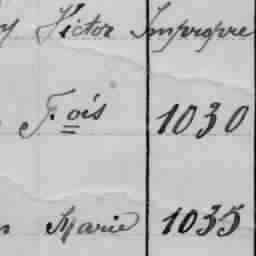 Victor Impropre
F.ois 1030
Marie 1035